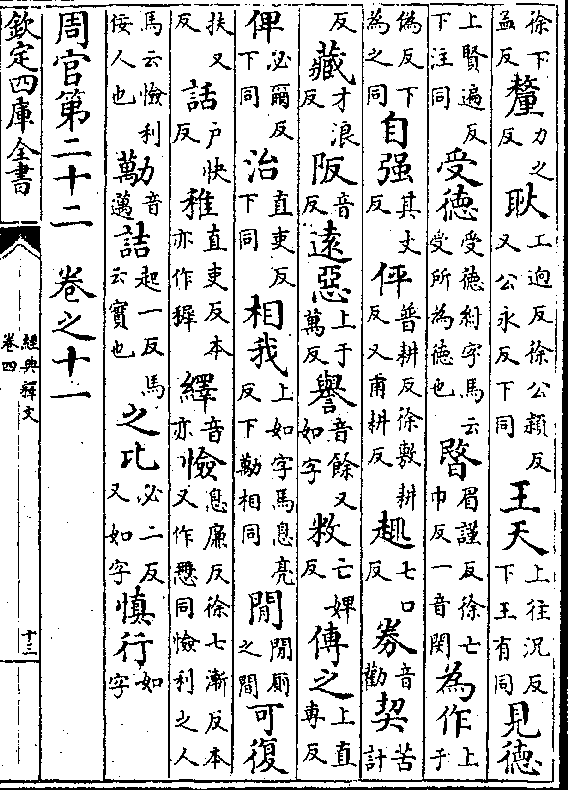 徐下孟反釐力之反耿工迥反徐公穎反又公永反下同王天上往況反下王有同見德
上賢遍反下注同受德受德紂字馬云受所為德也暋眉謹反徐亡巾反一音閔為作上于
偽反下為之同自强其丈反伻普耕反徐敷耕反又甫耕反趣七口反券音勸契苦計
反藏才浪反阪音反遠惡上于萬反譽音餘又如字敉亡婢反傳之上直專反
俾必爾反下同治直吏反下同相我上如字馬息亮反下勱相同閒閒厠之間可復
扶又反話戶快反稚直吏反本亦作稺繹音亦憸息廉反徐七漸反本又作㦒同憸利之人
馬云憸利佞人也勱音邁詰起一反馬云實也之比必二反又如字慎行如字
周官第二十二　卷之十一
欽定四庫全書
經典釋文
卷四
十三